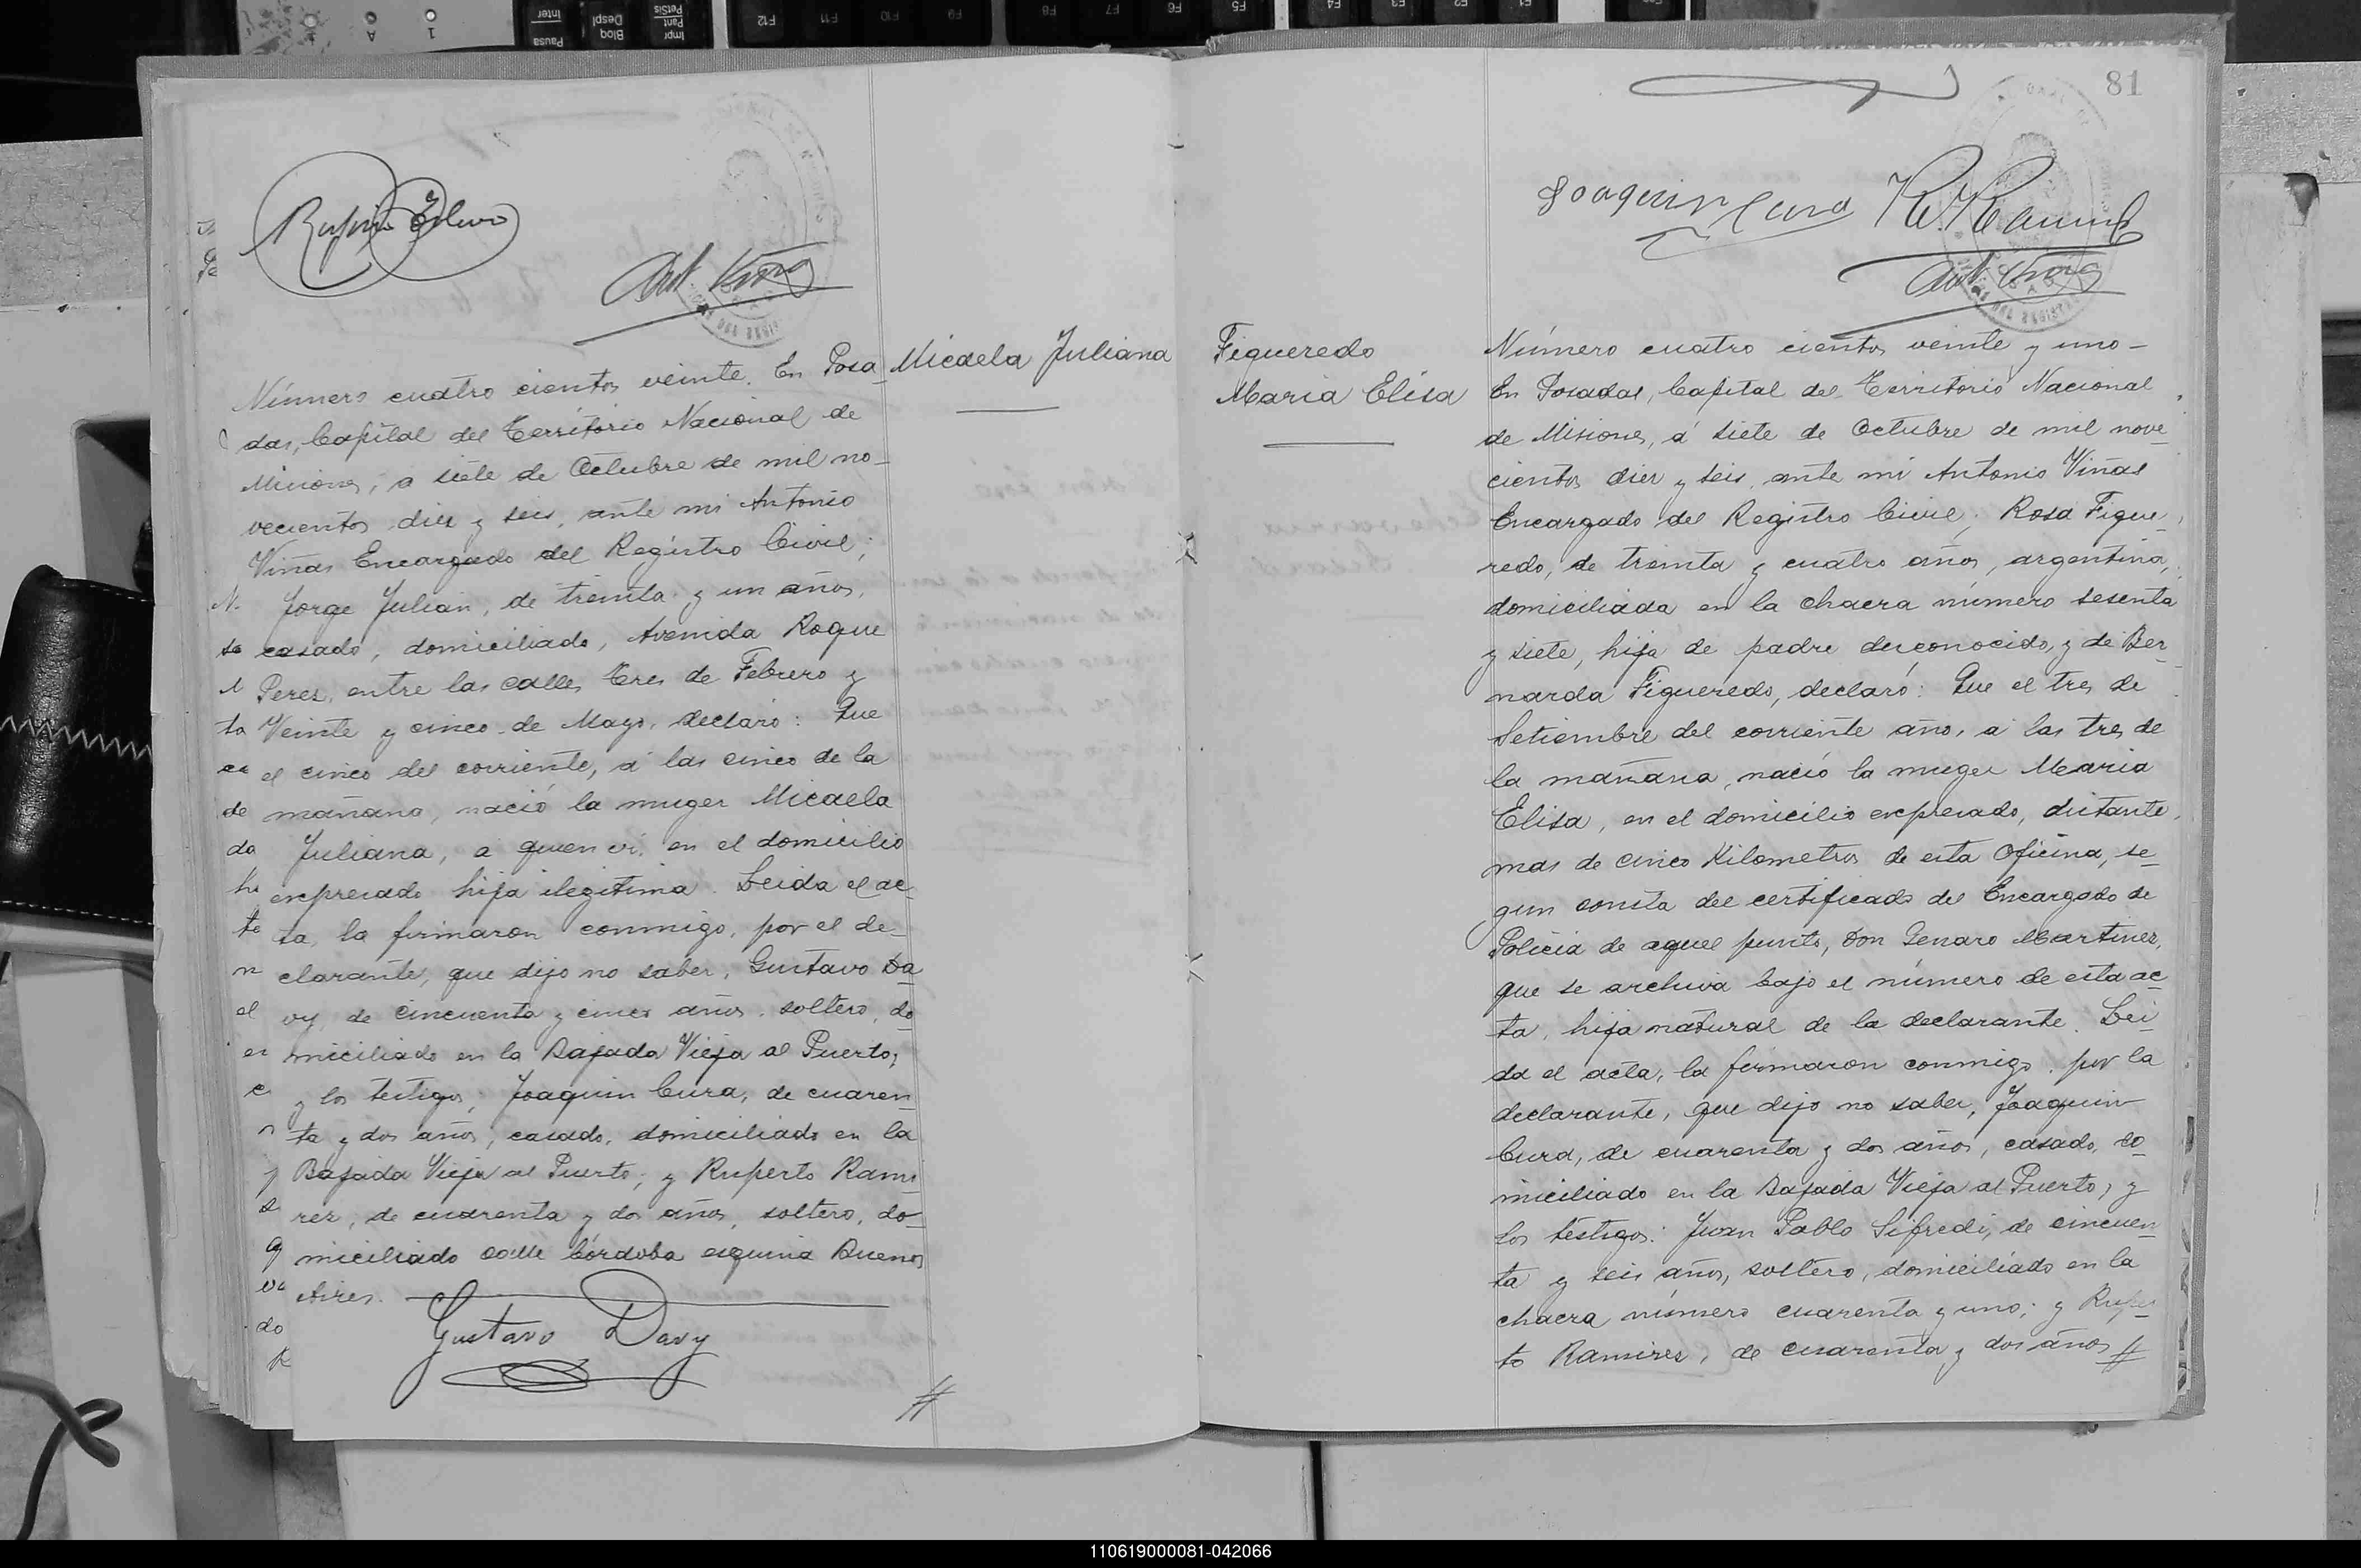 Micaela Juliana
Número cuatro cientos veinte. En Posa_
das, Capital del Territorio Nacional de
Misiones, a siete de Octubre de mil no_
vecientos diez y seis, ante mi Antonio
Viñas Encargado del Registro Civil;
Jorge Julian, de treinta y un años,
casado, domiciliado, Avenida Roque
Perez, entre las calles Tres de Febrero y
Veinte y cinco de Mayo, declaró: Que
el cinco del corriente, á las cinco de la
mañana, nació la muger Micaela
Juliana, a quien vi, en el domicilio
expresado hija ilegitima. Leida el ac_
ta, la firmaron conmigo, por el de_
clarante, que dijo no saber, Gustavo Da_
vy, de cincuenta y cinco años, soltero, do_
miciliado en la Bajada Vieja al Puerto;
y los testigos, Joaquin Cura, de cuaren_
ta y dos años, casado, domiciliado en la
Bajada Vieja al Puerto; y Ruperto Rami_
rez, de cuarenta y dos años, soltero, do_
miciliado calle Córdoba esquina Buenos
Aires.
Gustavo Davy
//
81
Joaquin Cura R. Ramirez
Ant Viñas
Figueredo
Maria Elisa
Número cuatro cientos veinte y uno_
En Posadas, Capital del Territorio Nacional
de Misiones, á siete de Octubre de mil nove_
cientos diez y seis, ante mi Antonio Viñas
Encargado del Registro Civil; Rosa Figue_
redo, de treinta y cuatro años, argentina,
domiciliada en la chacra número sesenta
y siete, hija de padre desconocido, y de Ber_
narda Figueredo, declaró: Que el tres de
Setiembre del corriente año, a las tres de
la mañana, nació la muger Maria
Elisa, en el domicilio expresado, distante
mas de cinco Kilometros de esta Oficina, se_
gun consta del certificado del Encargado de
Policia de aquel punto, Don Genaro Martinez,
que se archiva bajo el número de esta ac_
ta, hija natural de la declarante. Lei_
da el acta, la firmaron conmigo, por la
declarante, que dijo no saber, Joaquin
Cura, de cuarenta y dos años, casado, do_
miciliado en la Bajada Vieja al Puerto, y
los testigos: Juan Pablo Sifredi, de cincuen_
ta y seis años, soltero, domiciliado en la
chacra número cuarenta y uno; y Ruper_
to Ramirez, de cuarenta y dos años //
110619000081-042066